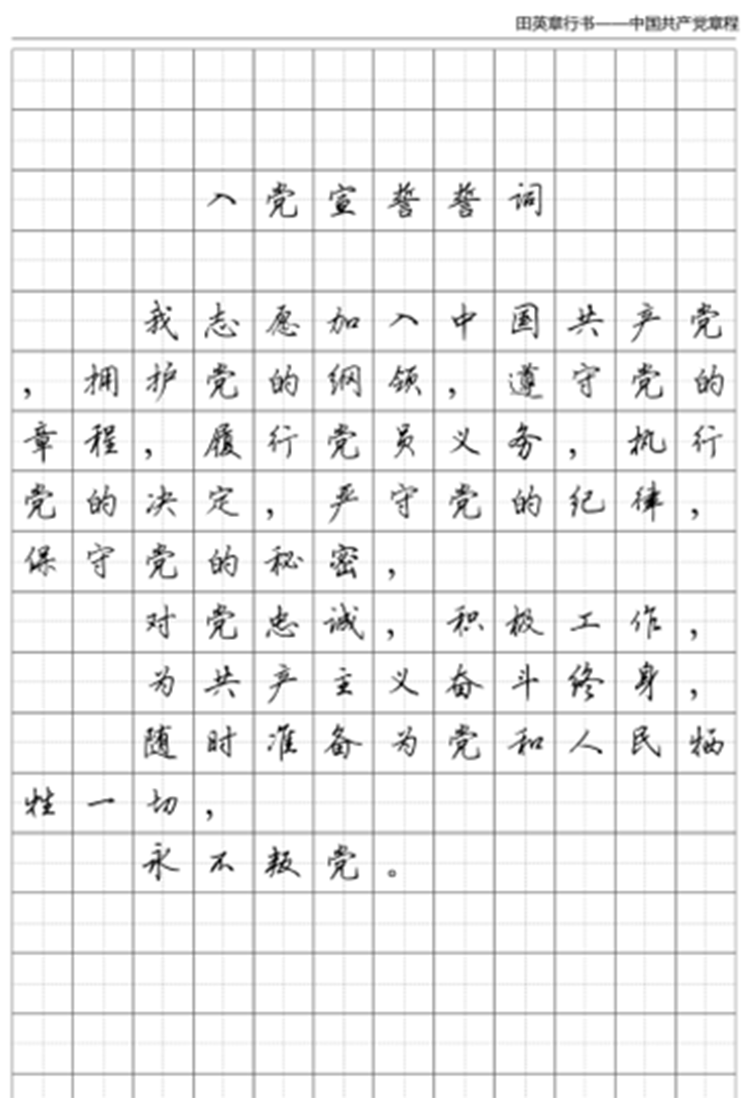 田英章行书——中国共产党章程
入党宣誓誓词
我志愿加入中国共产党
，拥护党的纲领，遵守党的
章程，履行党员义务，执行
党的决定，严守党的纪律，
保守党的秘密，
对党忠诚，积极工作，
为共产主义奋斗终身，
随时准备为党和人民牺
牲一切，
永不叛党。